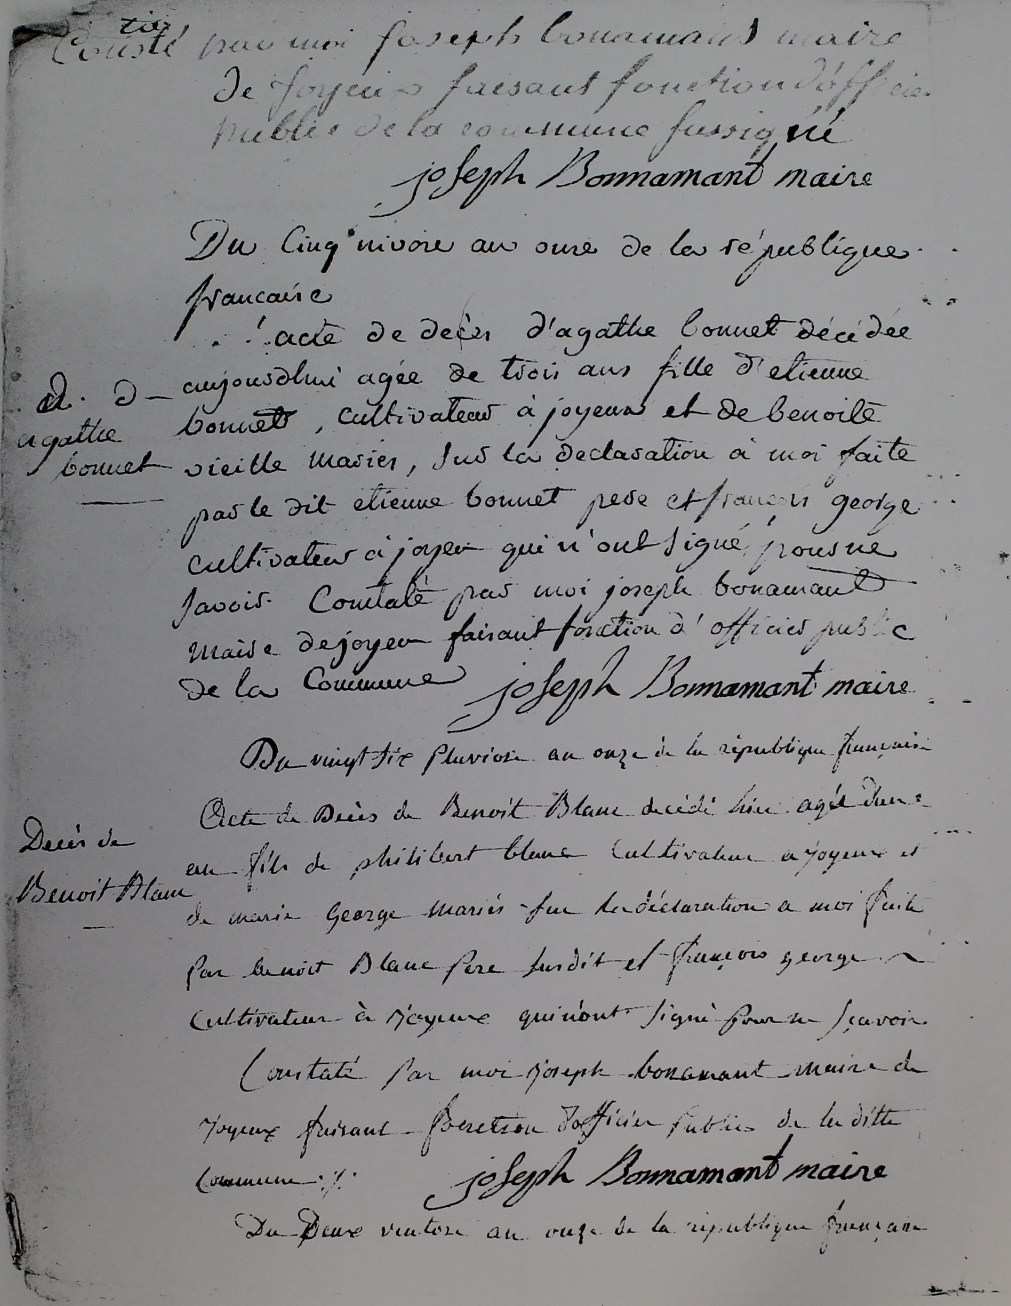 Consté par moi joseph bonamant maire
de joyeux faisant fonction d'officier
public de la commune sussigné
joseph Bonnamant maire
Du Cinq nivose an onse de la république
francaise
acte de decès d'agathe bonnet décédée
aujourdhui agée de trois ans fille d'etienne
bonnet, cultivateur à joyeux et de benoite
vieille mariés, sur la declaration à moi faite
par le dit etienne bonnet pere et francois george
cultivateur à joyeu qui n'ont signé pour ne
savoir. Constaté par moi joseph bonamant
maire de joyeu faisant fonction d'officier public
de la Commune
joseph Bonnamant maire
a. d
agathe
bonnet
Du vingt six pluviose an onze de la république française
Acte de Décès de Benoit Blanc decédé hier agé d'un
an fils de philibert blanc Cultivateur a joyeux et
de marie George mariés sur la déclaration a moi faite
par benoit Blanc pere susdit et françois george
Cultivateur à joyeux qui n'ont signé pour ne sçavoir
Constaté par moi joseph bonamant maire de
joyeux faisant fonction d'officier public de la ditte
Commune
joseph Bonnamant maire
Decès de
Benoit Blanc
Du Deux ventose an onze de la république française